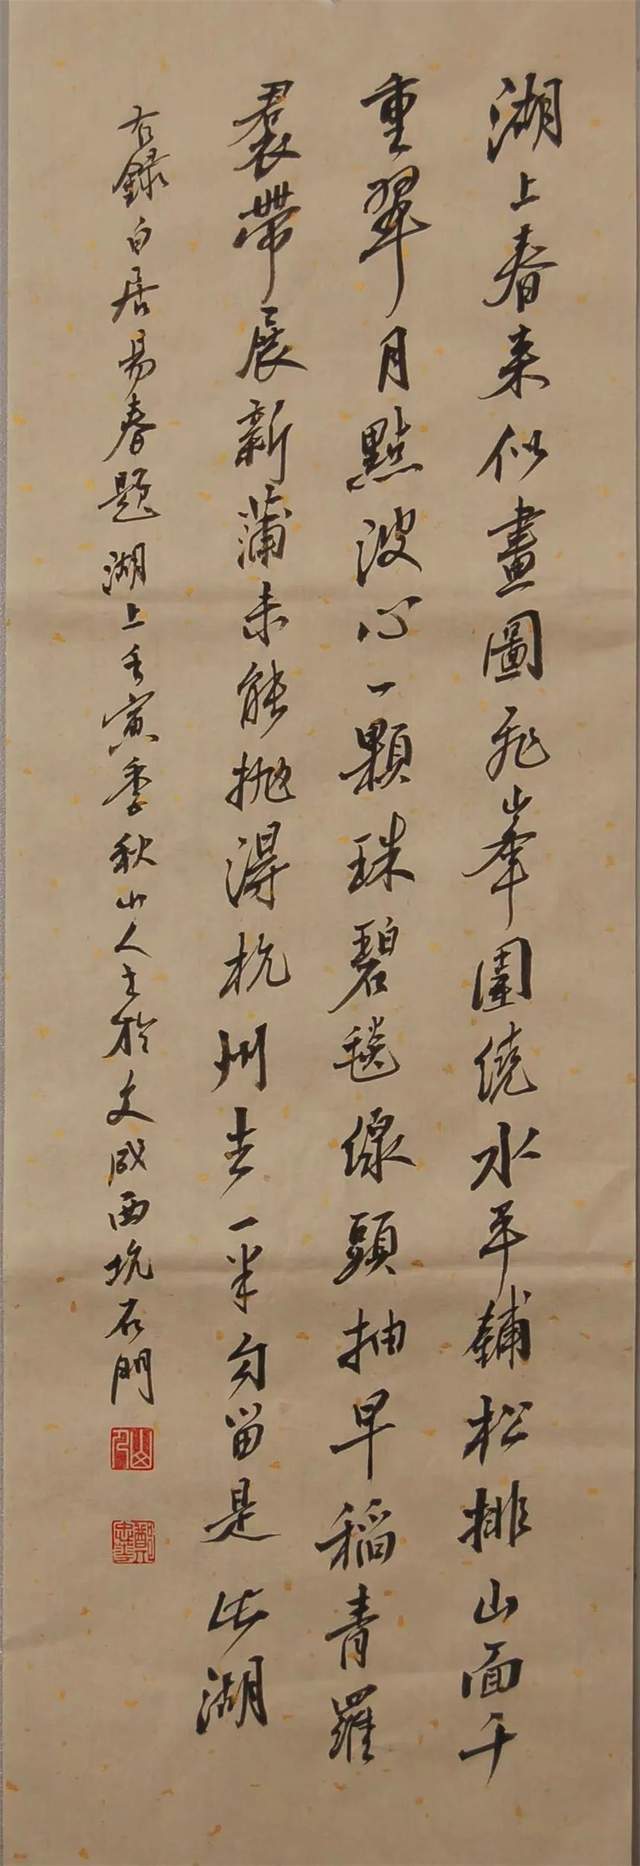 湖上春來似畫圖亂峯圍繞水平鋪松排山面千
重翠月點波心一顆珠碧毯線頭抽早稻青羅
裠帶展新蒲未能抛得杭州去一半勾留是此湖
右錄白居易春題湖上壬寅季秋山人書於文成西坑石門
山人
鄭忠